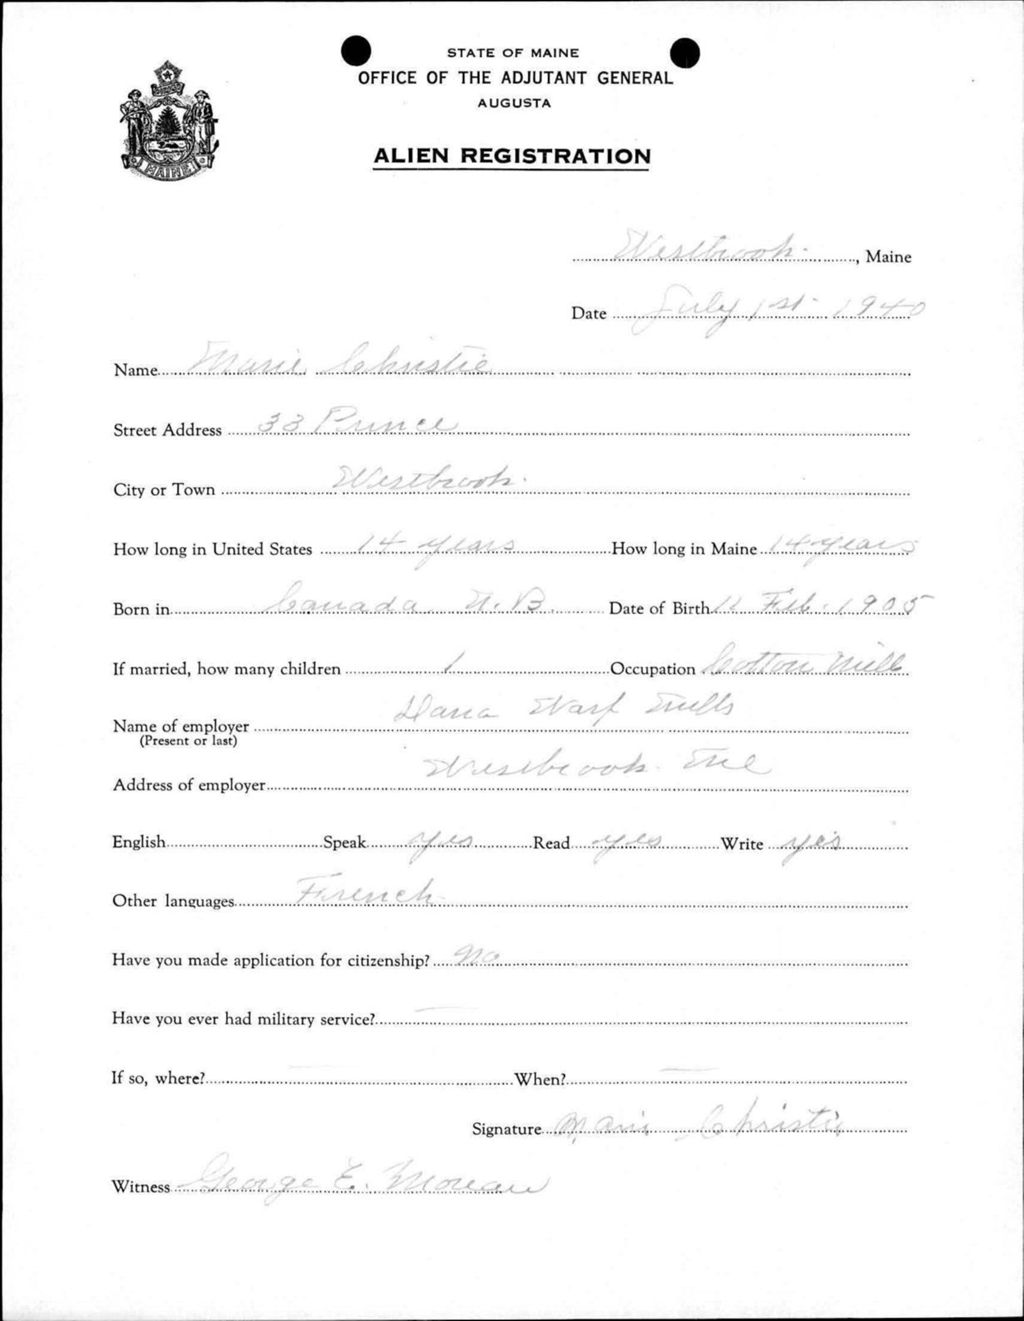 STATE OF MAINE
OFFICE OF THE ADJUTANT GENERAL
AUGUSTA
MAINE
ALIEN REGISTRATION
Westbrook, Maine
Date July 1st 1940
Name Marie Christie
Street Address 33 Prince
City or Town Westbrook
How long in United States 14 years How long in Maine 14 years
Born in Canada N.B. Date of Birth 11 Feb. 1905
If married, how many children 1 Occupation Cotton Mill
Name of employer Dana Warp Mills
(Present or last)
Address of employer Westbrook Me
English Speak yes Read yes Write yes
Other languages French
Have you made application for citizenship? No
Have you ever had military service? —
If so, where? — When? —
Signature Marie Christie
Witness George E. Moreau